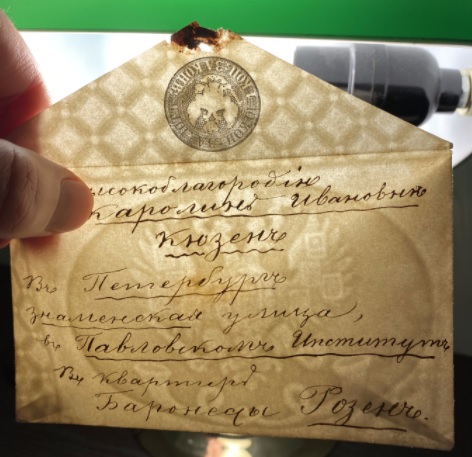 ысокоблагородію
Каролинѣ Ивановнѣ
Кюзенъ
Въ Петербургъ
Знаменская улица,
въ Павловскомъ Институтѣ
Въ квартирѣ
Баронессы Розенъ.